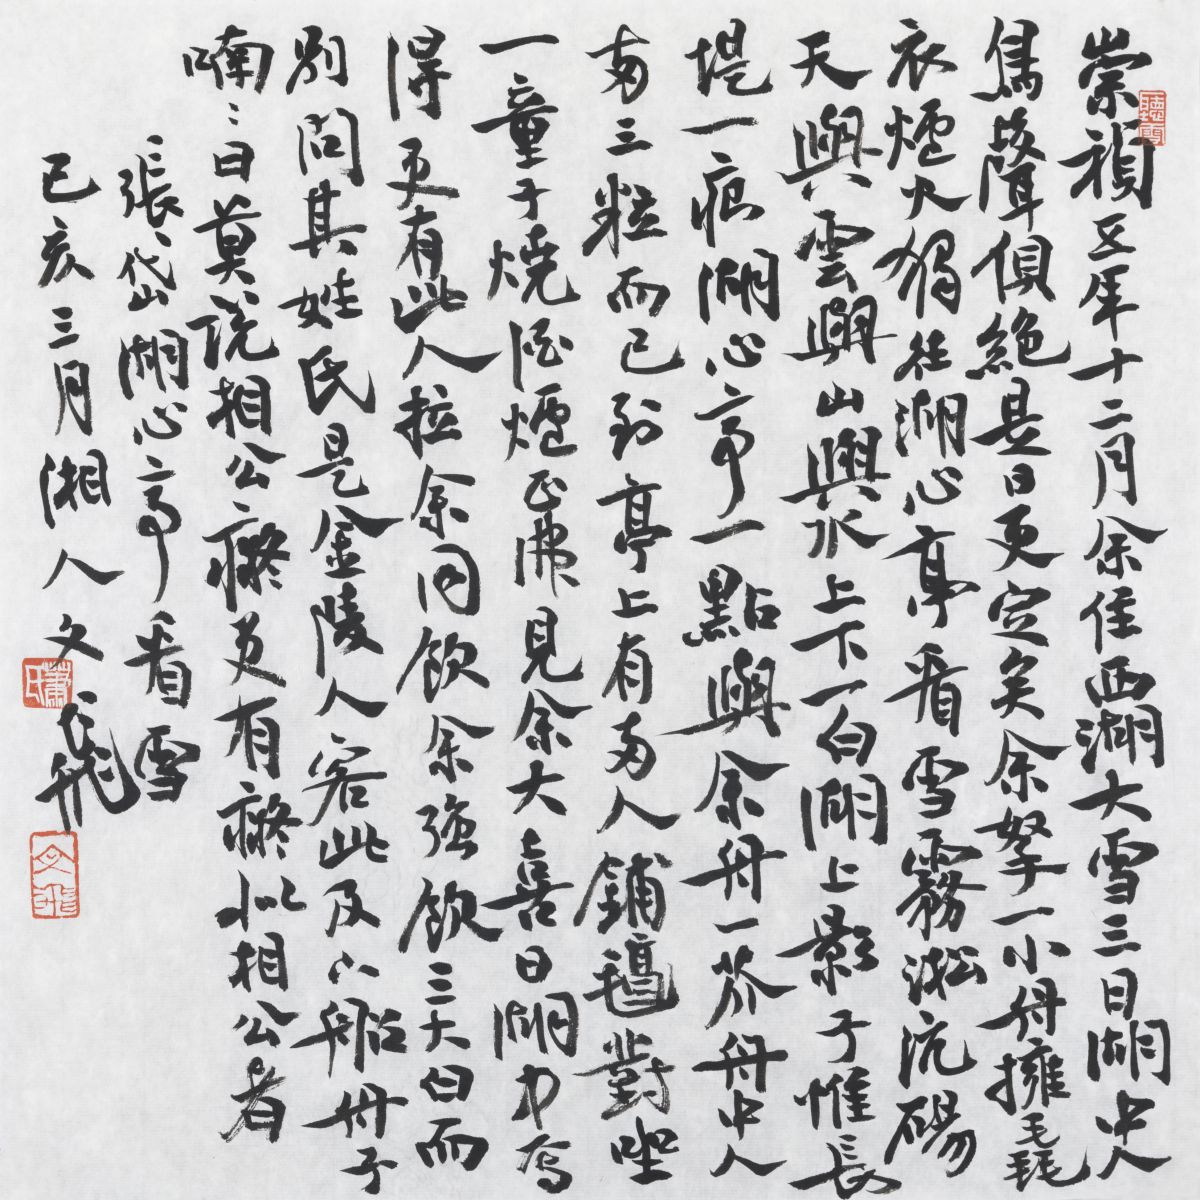 崇禎五年十二月余住西湖大雪三日湖中人
鳥聲俱絕是日更定矣余拏一小舟擁毳
衣爐火獨往湖心亭看雪霧淞沆碭
天與雲與山與水上下一白湖上影子惟長
堤一痕湖心亭一點與余舟一芥舟中人
兩三粒而已到亭上有兩人鋪氈對坐
一童子燒酒爐正沸見余大喜曰湖中焉
得更有此人拉余同飲余強飲三大白而
別問其姓氏是金陵人客此及下船舟子
喃〻曰莫說相公癡更有癡似相公者
張岱湖心亭看雪
己亥三月湘人文飛
聽雪
文飛